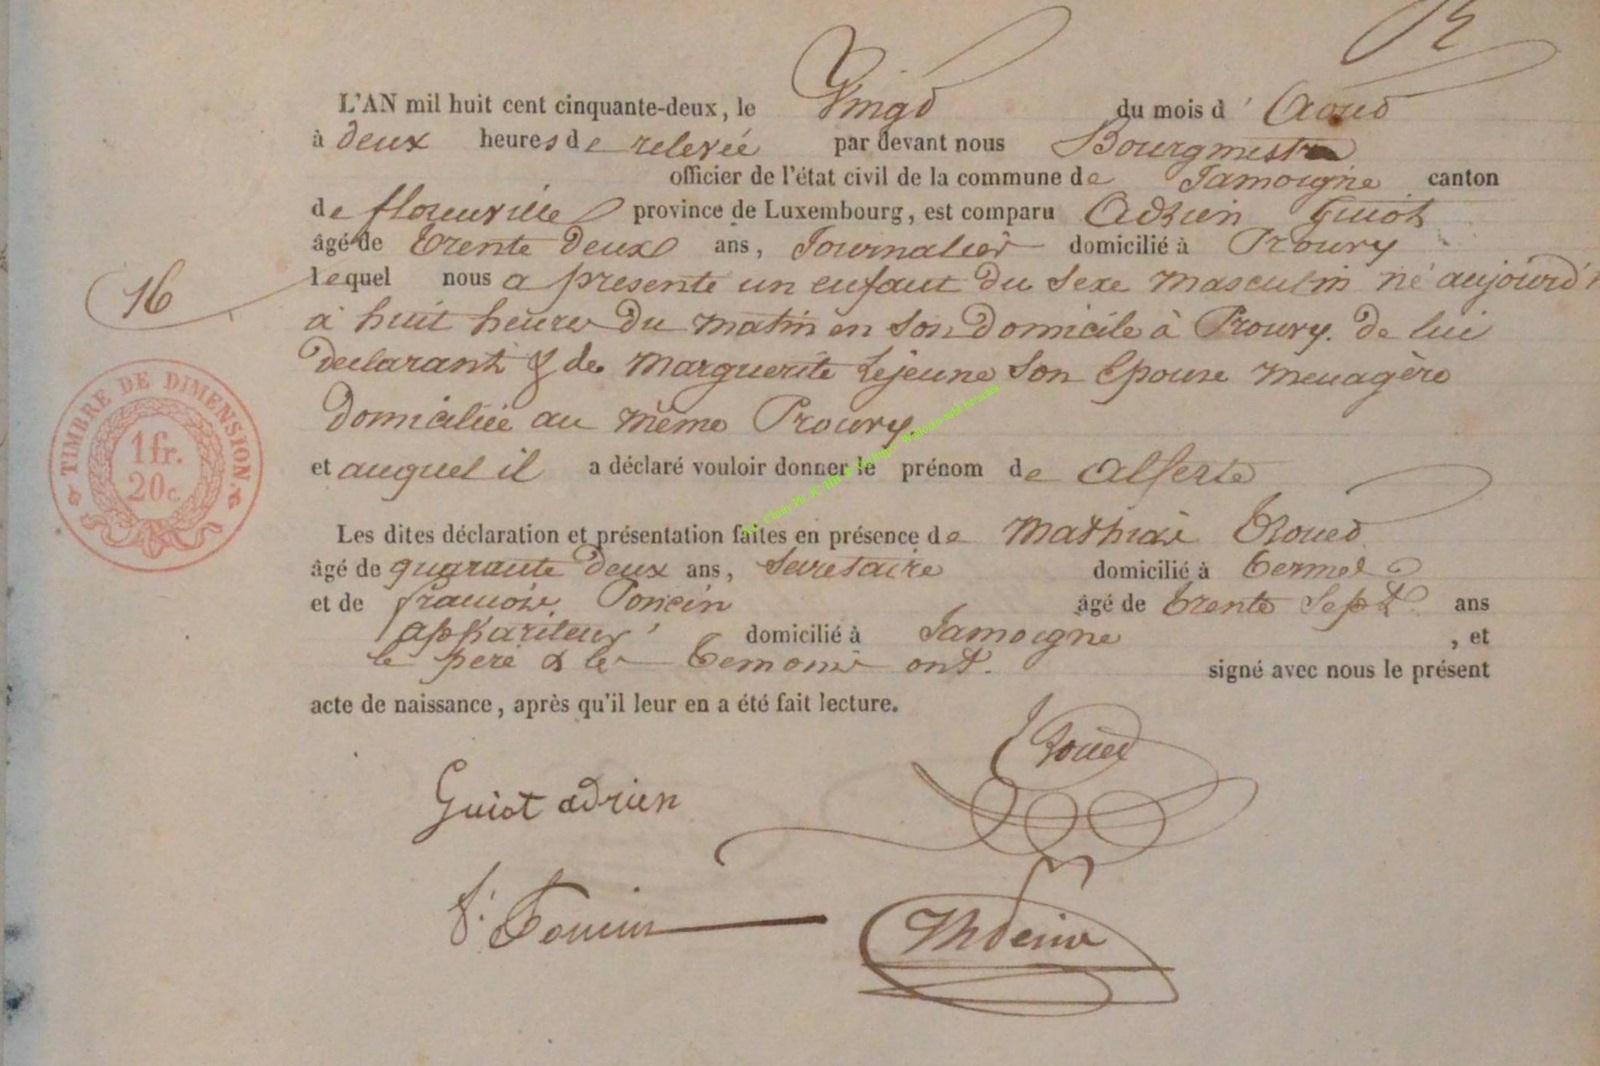 L'AN mil huit cent cinquante-deux, le Vingt du mois d'Aout
à deux heures de relevée par devant nous Bourgmestre
officier de l'état civil de la commune de Jamoigne canton
de florenville province de Luxembourg, est comparu Adrien Guiot
âgé de trente deux ans, Journalier domicilié à Prouvy
16
lequel nous a presenté un enfant du sexe masculin né aujourd'h
à huit heures du matin en son domicile à Prouvy. de lui
declarant & de Marguerite Lejeune son Epouse menagère
domiciliée au même Prouvy.
et auquel il a déclaré vouloir donner le prénom de Alferte
TIMBRE DE DIMENSION.
1 fr.
20 c.
Les dites déclaration et présentation faites en présence de Mathias
âgé de quarante deux ans, Secretaire domicilié à Termes
et de francois Poncin âgé de trente Sept ans
appariteur domicilié à Jamoigne , et
le pere & les temoins ont signé avec nous le présent
acte de naissance, après qu'il leur en a été fait lecture.
Guiot adrien
f. Poncin